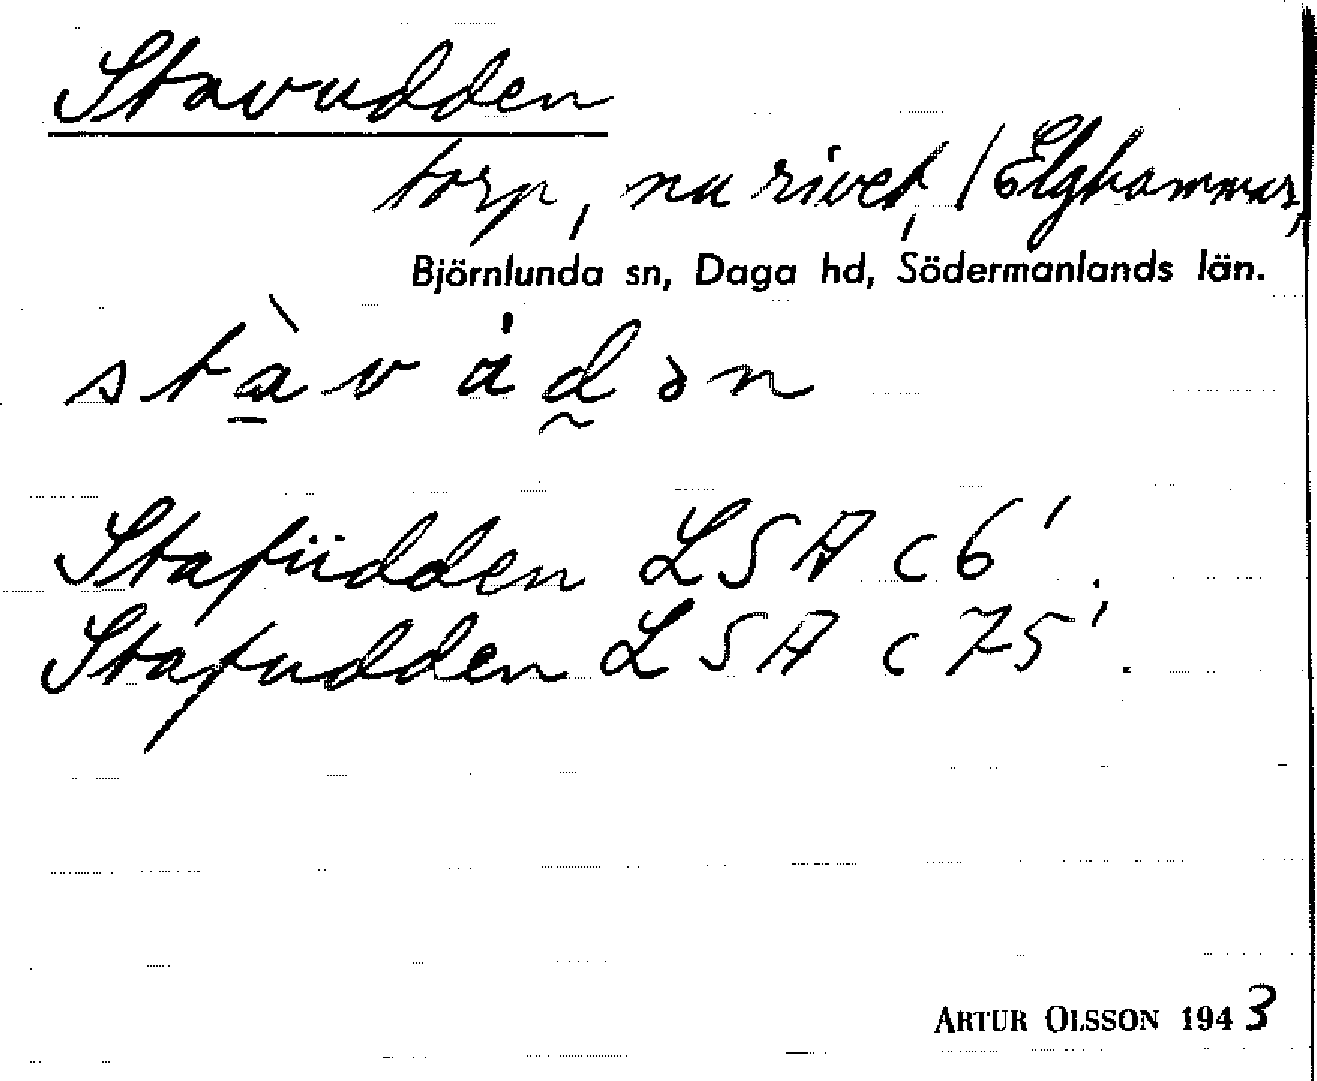 Stavudden
torp, nu rivet, / Elghammar,
Björnlunda sn, Daga hd, Södermanlands län.
Stafüdden LSA c 6'.
Stafudden LSA c 75'.
ARTUR OLSSON 1943